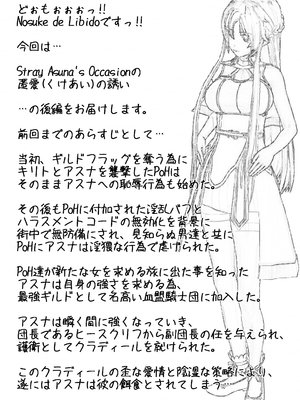 どぉもぉぉぉっ!!
Nosuke de Libidoですっ!!
今回は…
Stray Asuna's Occasionの
置愛(くけあい)の誘い
…の後編をお届けします。
前回までのあらすじとして…
当初、ギルドフラッグを奪う為に
キリトとアスナを襲撃したPoHは
そのままアスナへの恥辱行為も始めた。
その後もPoHに付加された淫乱バフと
ハラスメントコードの無効化を背景に
街中で無防備にされ、見知らぬ男達と共に
PoHにアスナは淫猥な行為で虐げられた。
PoH達が新たな女を求める旅に出た事を知った
アスナは自身の強さを求める為、
最強ギルドとして名高い血盟騎士団に加入した。
アスナは瞬く間に強くなっていき、
団長であるヒースクリフから副団長の任を与えられ、
護衛としてクラディールを就けられた。
このクラディールの歪な愛情と陰湿な策略により、
遂にはアスナは彼の餌食とされてしまう…